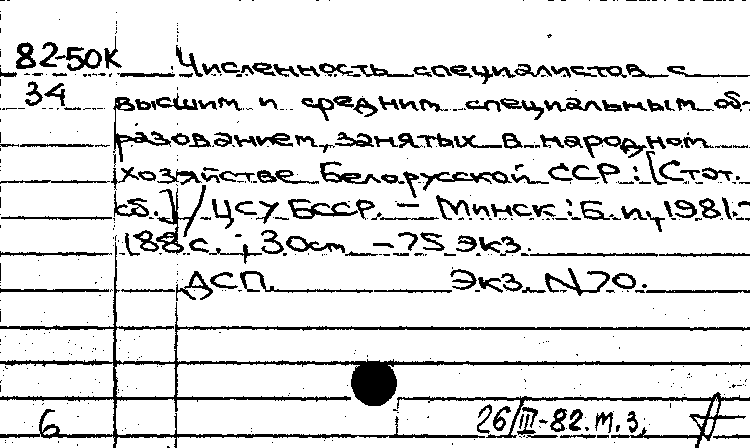 82-50К Численность специалистов с
34 высшим и средним специальным об-
разованием, занятых в народном
хозяйстве Белорусской ССР : [Стат.
сб.] / ЦСУ БССР. – Минск : Б. и., 1981. –
188 с. ; 30 см – 75 экз.
ДСП. Экз. N 70.
6 26/III-82. т. 3.